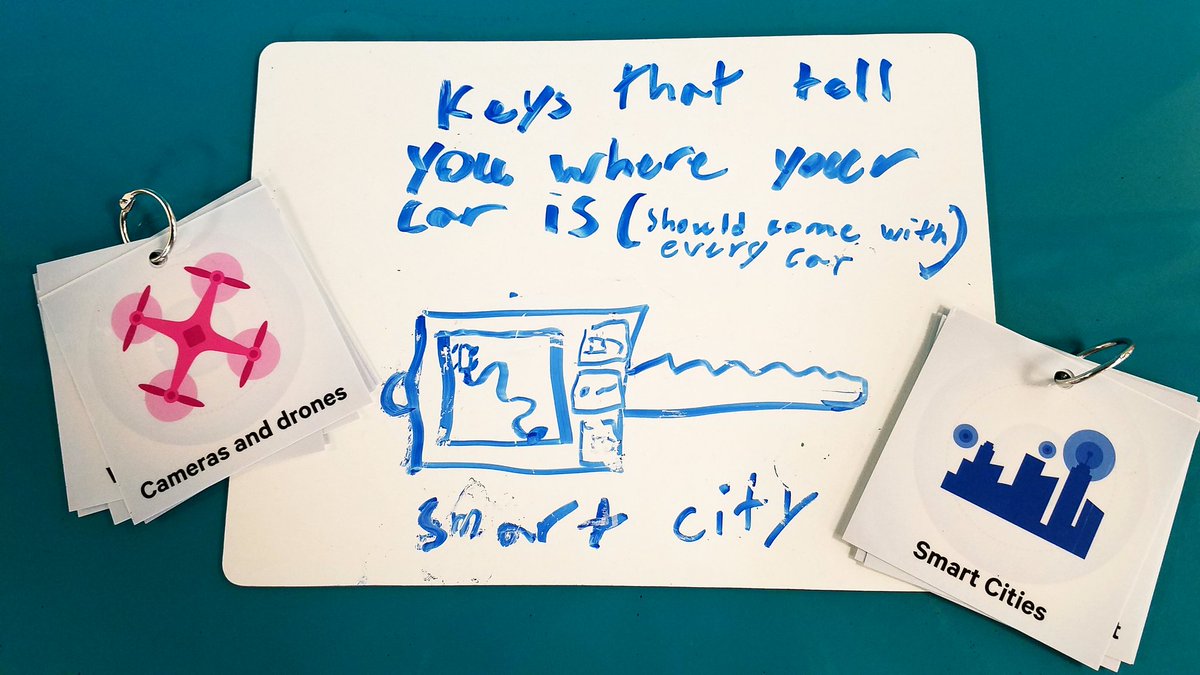 Keys that tell
you where your
car is (should come with)
every car
smart city
Cameras and drones
Smart Cities